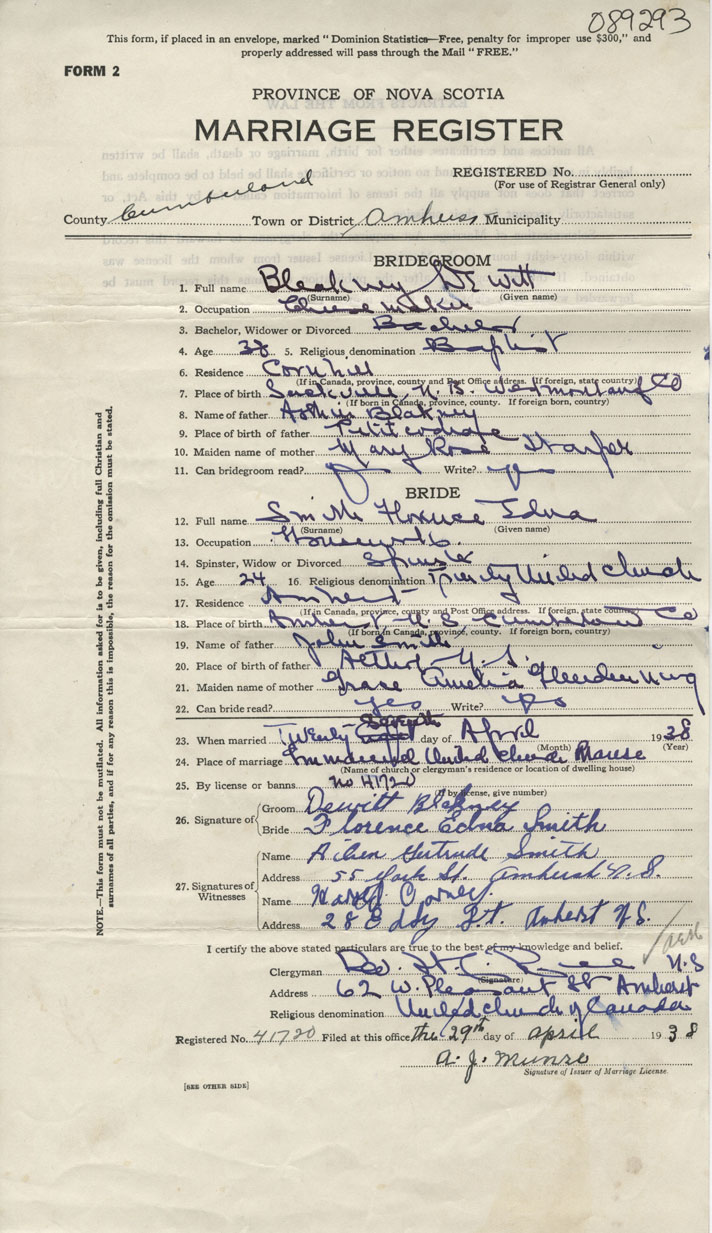 089293
This form, if placed in an envelope, marked "Dominion Statistics—Free, penalty for improper use $300," and
properly addressed will pass through the Mail "FREE."
FORM 2
PROVINCE OF NOVA SCOTIA
MARRIAGE REGISTER
REGISTERED No.
(For use of Registrar General only)
County Cumberland Town or District Amherst Municipality
BRIDEGROOM
1. Full name Bleakney De Witt
(Surname) (Given name)
2. Occupation Cheese maker
3. Bachelor, Widower or Divorced Bachelor
4. Age 38 5. Religious denomination Baptist
6. Residence Cornhill
(If in Canada, province, county and Post Office address. If foreign, state county)
7. Place of birth Sackville, N.B. Westmorland Co
(If born in Canada, province, county. If foreign born, county)
8. Name of father Arthur Blakney
9. Place of birth of father Petitcodiac
10. Maiden name of mother Mary Rose Harper
11. Can bridegroom read? yes Write? yes
BRIDE
12. Full name Smith Florence Edna
(Surname) (Given name)
13. Occupation Housework
14. Spinster, Widow or Divorced Spinster
15. Age 24 16. Religious denomination Trinity United Church
17. Residence Amherst
(If in Canada, province, county and Post Office address. If foreign, state county)
18. Place of birth Amherst N.S. Cumberland Co
(If born in Canada, province, county. If foreign born, country)
19. Name of father John Smith
20. Place of birth of father N.S.
21. Maiden name of mother Grace Amelia
22. Can bride read? yes Write? yes
23. When married Twenty Seventh day of April 1938
(Month) (Year)
24. Place of marriage United Church Manse
(Name of church or clergyman's residence or location of dwelling house)
25. By license or banns no 41720
(If by license, give number)
26. Signature of Groom Dewitt Blakney
Bride Florence Edna Smith
27. Signatures of Witnesses
Name Aileen Gertrude Smith
Address 55 York St. Amherst N.S.
Name Harold
Address 28 Eddy St. Amherst N.S.
I certify the above stated particulars are true to the best of my knowledge and belief.
Clergyman Rev. N.S
(Signature)
Address 62 W. Pleasant St Amherst
Religious denomination United church of Canada
Registered No. 41720 Filed at this office the 29th day of april 1938
A. J. Munro
Signature of Issuer of Marriage License.
[SEE OTHER SIDE]
NOTE.—This form must not be mutilated. All information asked for is to be given, including full Christian and
surnames of all parties, and if for any reason this is impossible, the reason for the omission must be stated.